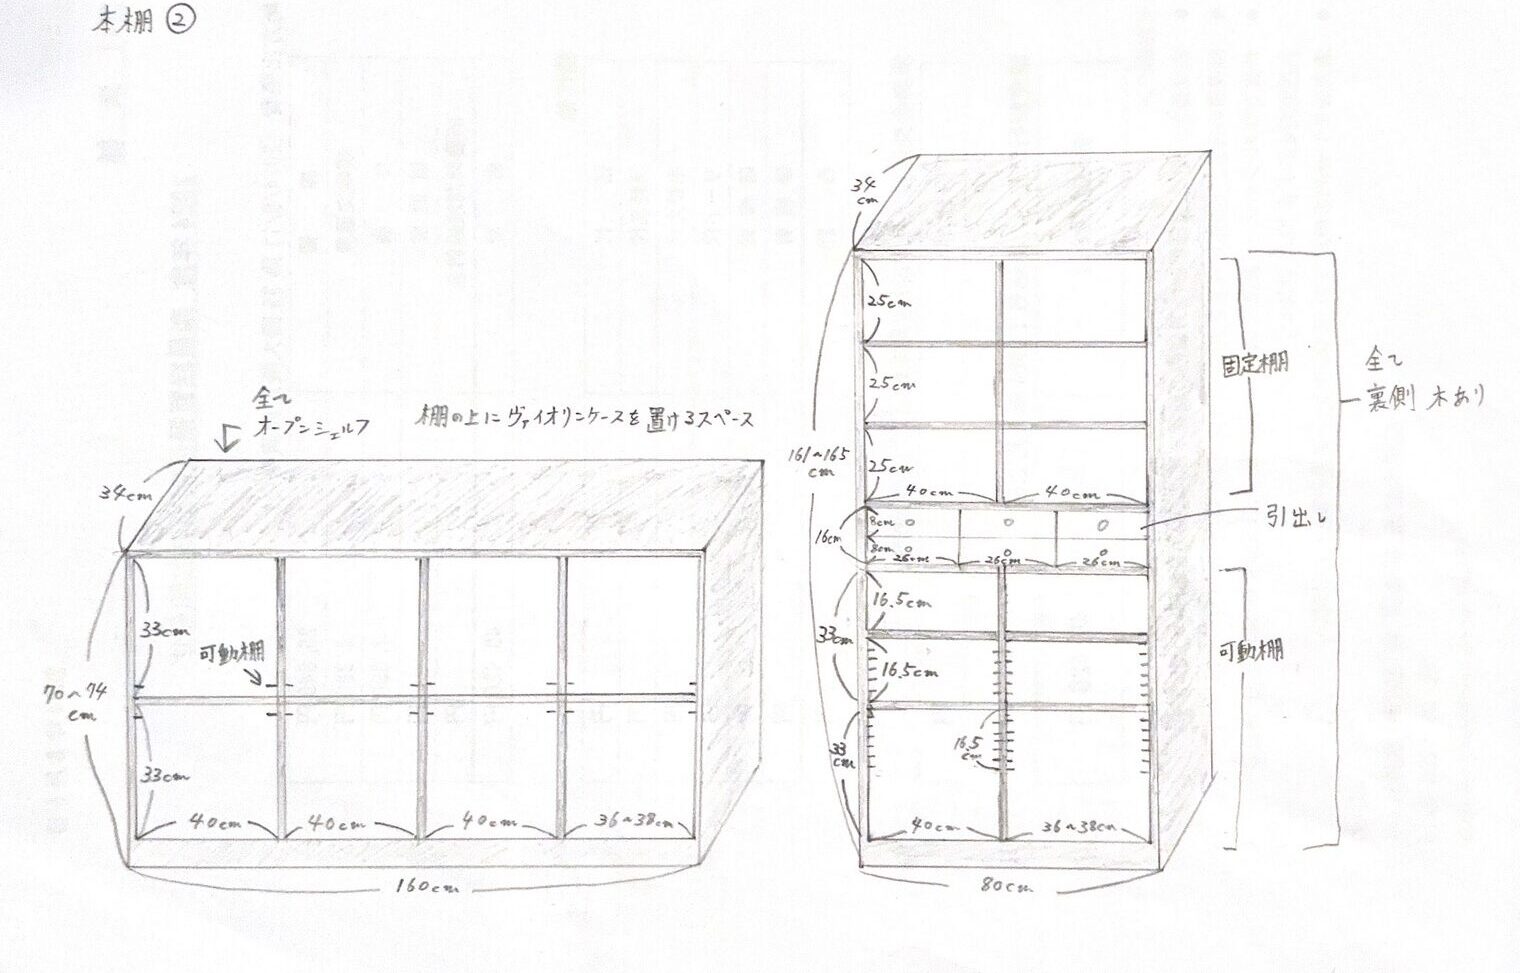 本棚 ②
全て
オープンシェルフ
棚の上に ヴァイオリンケースを置けるスペース
34cm
33cm
可動棚
70~74
cm
33cm
40cm
40cm
40cm
36~38cm
160cm
34
cm
25cm
25cm
161~165
cm
25cm
40cm
40cm
固定棚
全て
裏側 木あり
引出し
8cm
16cm
8cm
26cm
26cm
26cm
16.5cm
33cm
16.5cm
可動棚
16.5
cm
33
cm
40cm
36~38cm
80cm